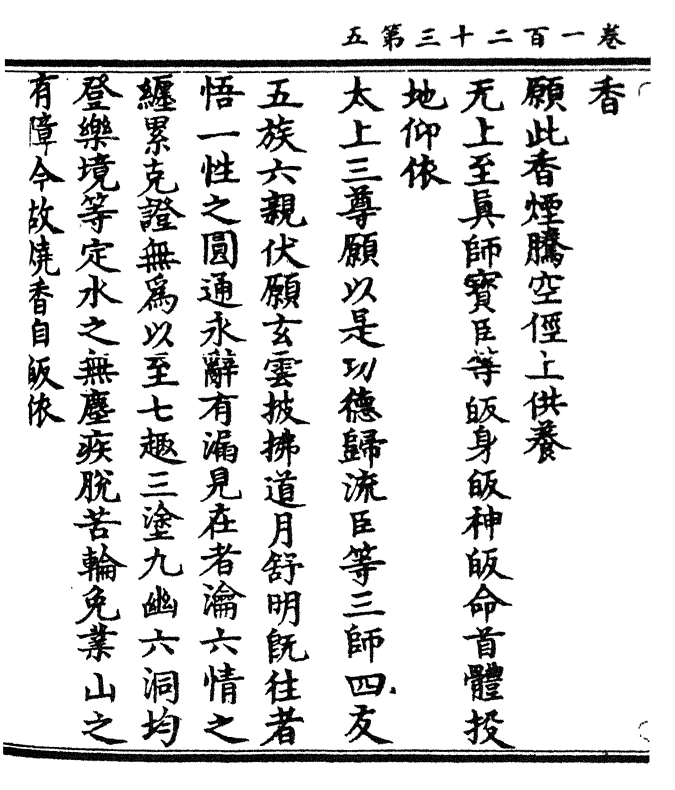 卷一百二十三第五
香
願此香煙騰空徑上供養
无上至眞師寶臣等皈身皈神皈命首體投
地仰依
太上三尊願以是功德歸流臣等三師四友
五族六親伏願玄雲披拂道月舒明旣往者
悟一性之圓通永辭有漏見在者瀹六情之
纏累克證無爲以至七趣三塗九幽六洞均
登樂境等定水之無塵疾脫苦輪免業山之
有障今故燒香自皈依